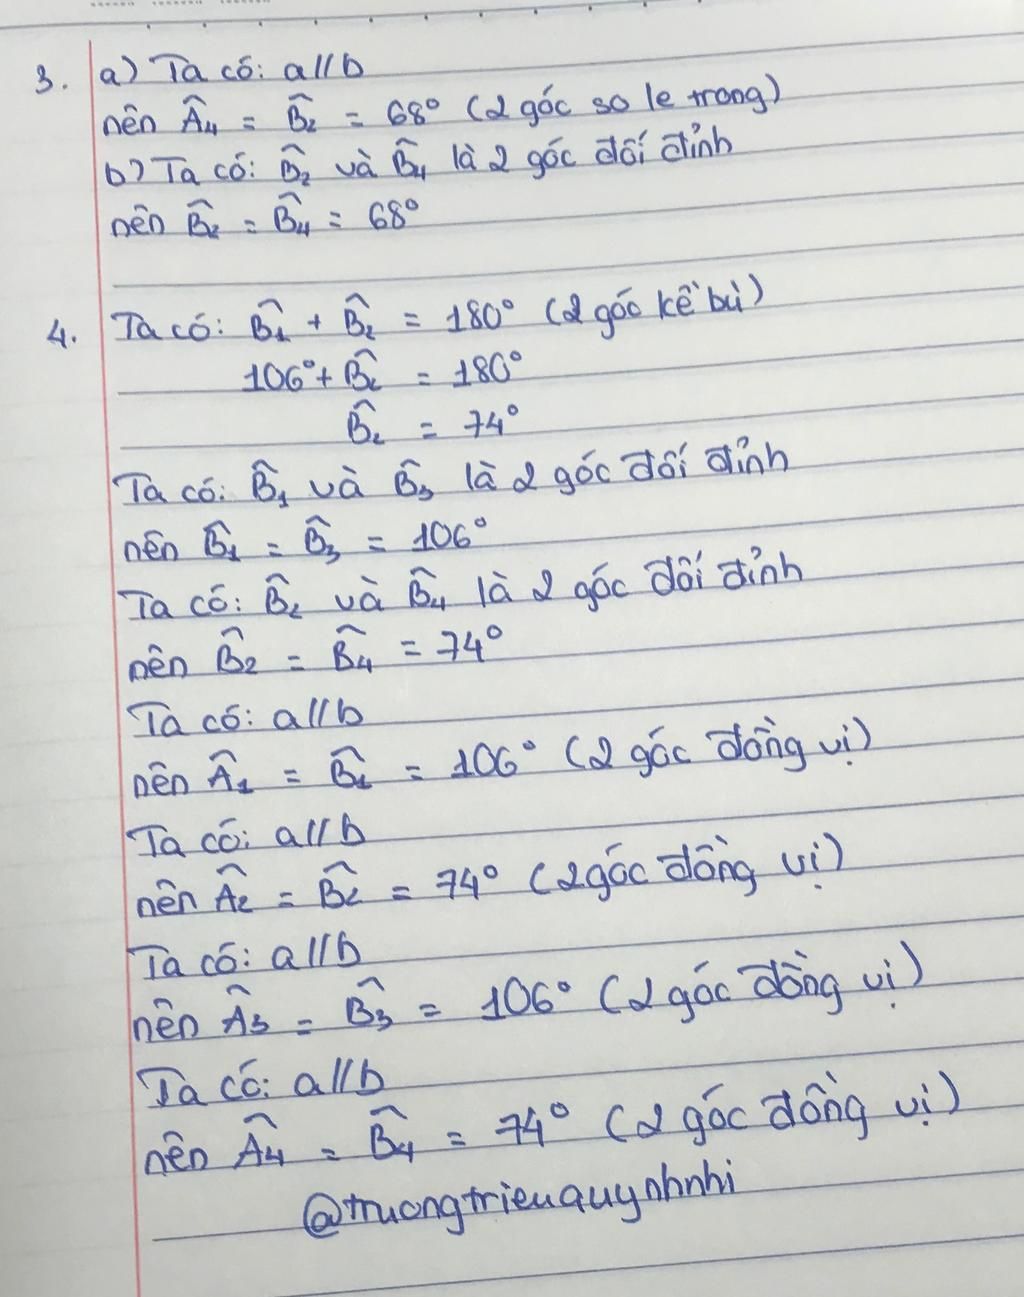 3. a) Ta có: a//b
nên Â₄ = B̂₂ = 68° (2 góc so le trong)
b) Ta có: B̂₂ và B̂₄ là 2 góc đối đỉnh
nên B̂₂ = B̂₄ = 68°
4. Ta có: B̂₁ + B̂₂ = 180° (2 góc kề bù)
106° + B̂₂ = 180°
B̂₂ = 74°
Ta có: B̂₁ và B̂₃ là 2 góc đối đỉnh
nên B̂₁ = B̂₃ = 106°
Ta có: B̂₂ và B̂₄ là 2 góc đối đỉnh
nên B̂₂ = B̂₄ = 74°
Ta có: a//b
nên Â₁ = B̂₁ = 106° (2 góc đồng vị)
Ta có: a//b
nên Â₂ = B̂₂ = 74° (2 góc đồng vị)
Ta có: a//b
nên Â₃ = B̂₃ = 106° (2 góc đồng vị)
Ta có: a//b
nên Â₄ = B̂₄ = 74° (2 góc đồng vị)
@truongtrieuquynhnhi